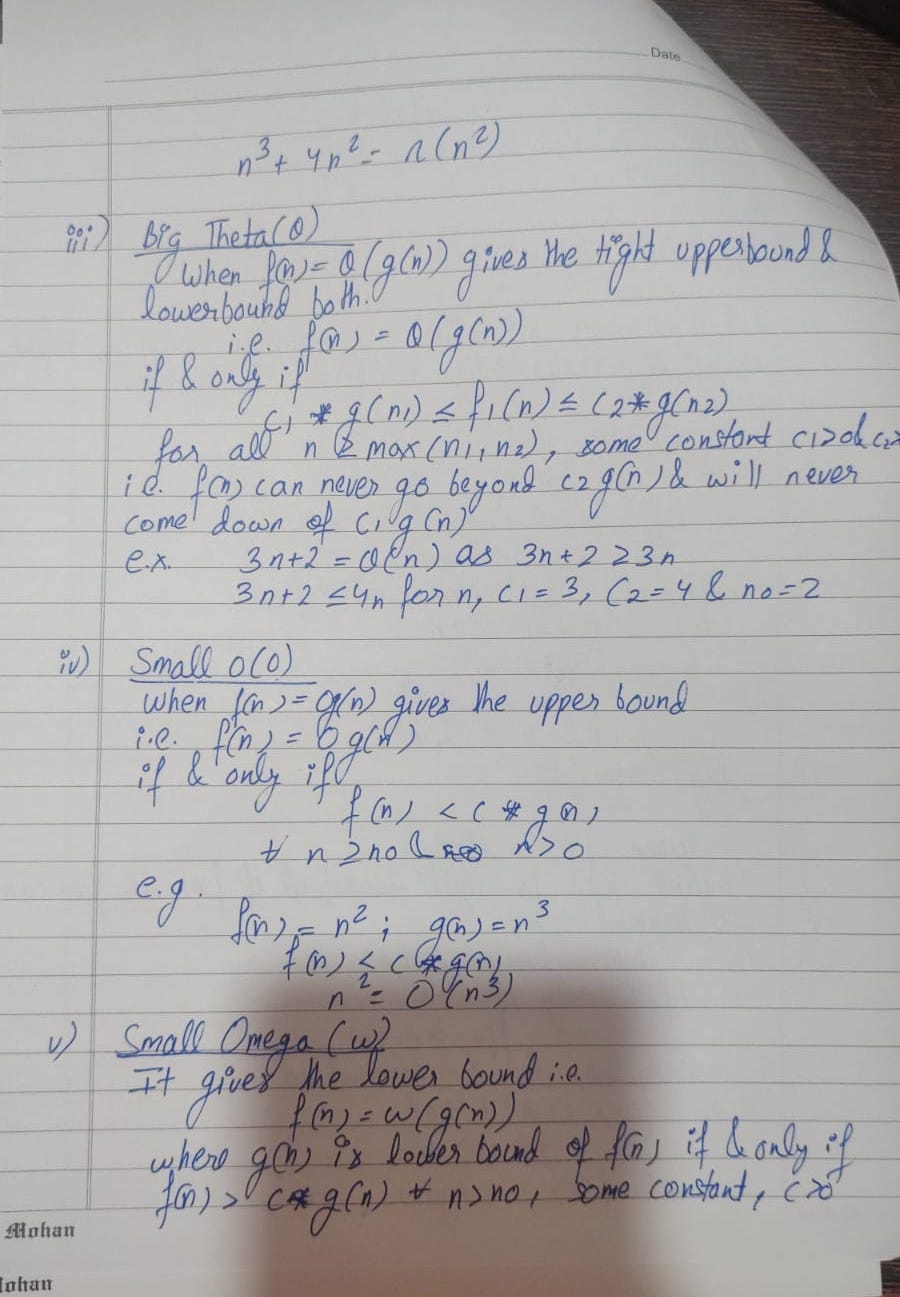 Date
n³ + 4n² = Ω(n²)
iii) Big Theta(θ)
When f(n) = θ(g(n)) gives the tight upperbound &
lowerbound both.
i.e. f(n) = θ(g(n))
if & only if
C₁ * g(n₁) ≤ f₁(n) ≤ C₂ * g(n₂)
for all n ≥ max(n₁, n₂), some constant C₁>0 & C₂>
i.e. f(n) can never go beyond C₂ g(n) & will never
come down of C₁ g(n)
e.x. 3n+2 = θ(n) as 3n+2 ≥ 3n
3n+2 ≤ 4n for n, C₁ = 3, C₂ = 4 & n₀ = 2
iv) Small o(o)
When f(n) = og(n) gives the upper bound
i.e. f(n) = og(n)
if & only if
f(n) < c * g(n)
∀ n ≥ n₀ & n > 0
e.g.
f(n) = n² ; g(n) = n³
f(n) < c * g(n)
n² = O(n³)
v) Small Omega (ω)
It gives the lower bound i.e.
f(n) = ω(g(n))
where g(n) is lower bound of f(n) if & only if
f(n) > c * g(n) ∀ n > n₀, some constant, c > 0
Mohan
Mohan